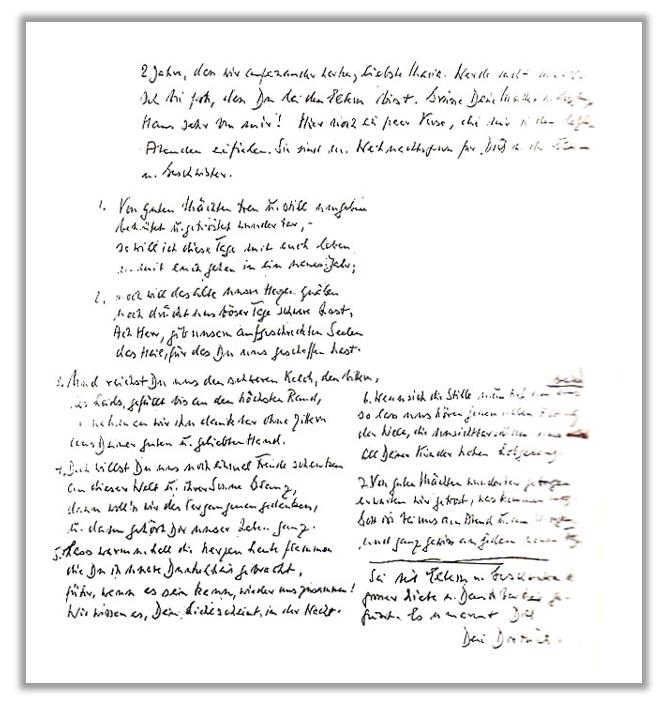 2 Jahre, den wir aufeinander warten, liebste Maria. Werde nicht
Ich bin froh, dass Du bei den Eltern bist. Grüsse Deine Mutter u.
Haus sehr von mir! Hier noch ein paar Verse, die mir in den letzten
Abenden einfielen. Sie sind der Weihnachtsgruss für Dich u. die Eltern
u. Geschwister.
1. Von guten Mächten treu u. still umgeben
behütet u. getröstet wunderbar, -
so will ich diese Tage mit euch leben
u. mit euch gehen in ein neues Jahr;
2. noch will das alte unsre Herzen quälen
noch drückt uns böser Tage schwere Last,
Ach Herr, gib unsern aufgeschreckten Seelen
das Heil, für das Du uns geschaffen hast.
3. Und reichst Du uns den schweren Kelch, den bittern,
des Leids, gefüllt bis an den höchsten Rand,
so nehmen wir ihn dankbar ohne Zittern
aus Deiner guten u. geliebten Hand.
4. Doch willst Du uns noch einmal Freude schenken
an dieser Welt u. ihrer Sonne Glanz,
dann woll'n wir des Vergangenen gedenken,
u. dann gehört Dir unser Leben ganz.
5. Lass warm u. hell die Kerzen heute flammen
die Du in unsre Dunkelheit gebracht,
führ, wenn es sein kann, wieder uns zusammen!
Wir wissen es, Dein Licht scheint in der Nacht.
6. Wenn sich die Stille nun tief um uns
so lass uns hören jenen vollen Klang
der Welt, die unsichtbar sich um uns
all Deiner Kinder hohen Lobgesang.
7. Von guten Mächten wunderbar geborgen
erwarten wir getrost, was kommen mag.
Gott ist bei uns am Abend u. am Morgen,
und ganz gewiss an jedem neuen Tag
Sei mit Eltern u. Geschwistern in
grosser Liebe u. Dankbarkeit ge-
grüsst. Es umarmt Dich
Dein Dietrich